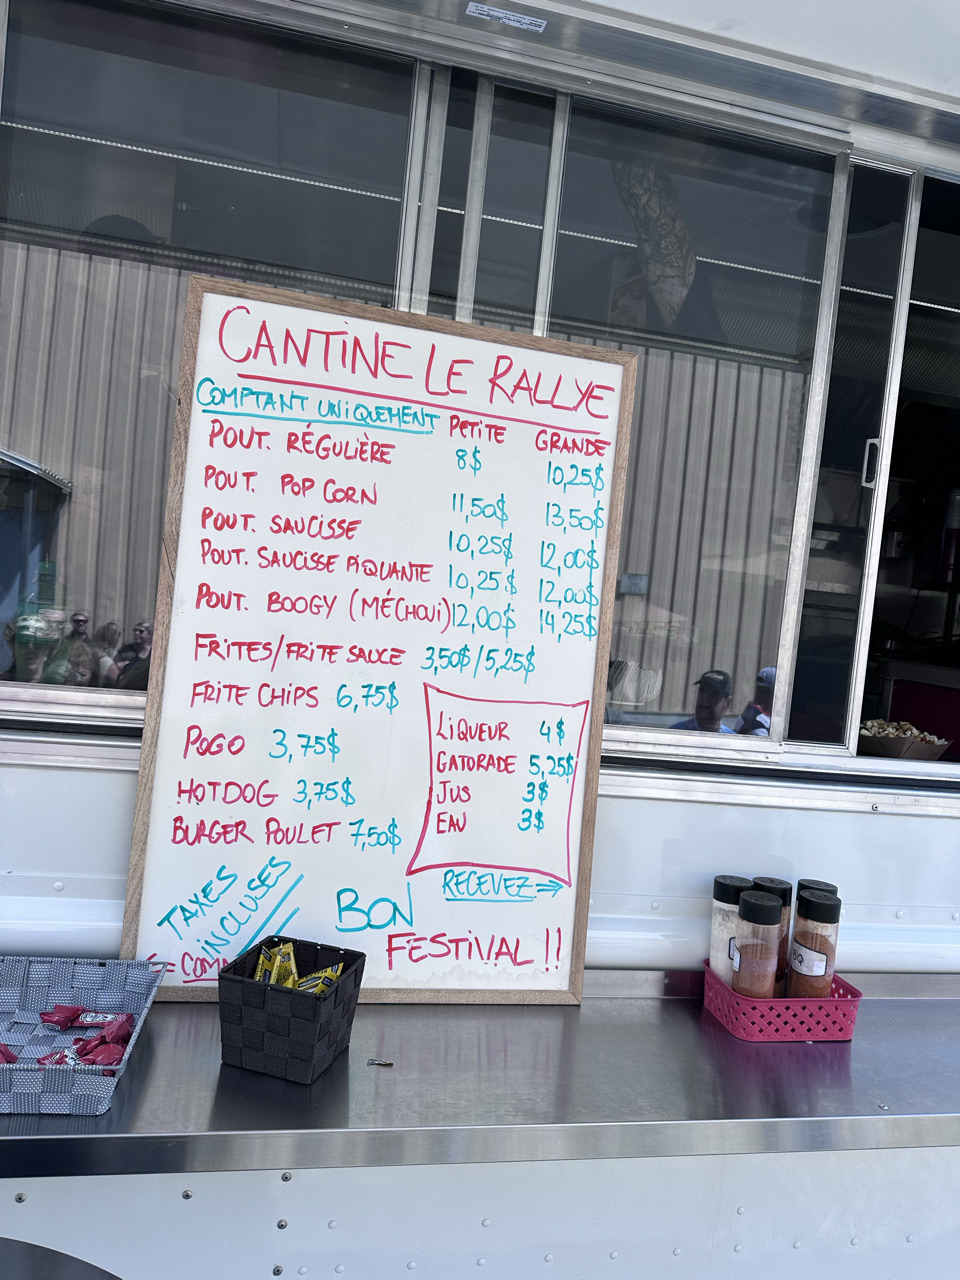 CANTINE LE RALLYE
COMPTANT UNIQUEMENT PETITE GRANDE
POUT. RÉGULIÈRE 8$ 10,25$
POUT. POP CORN 11,50$ 13,50$
POUT. SAUCISSE 10,25$ 12,00$
POUT. SAUCISSE PIQUANTE 10,25$ 12,00$
POUT. BOOGY (MÉCHOUI) 12,00$ 14,25$
FRITES/FRITE SAUCE 3,50$/5,25$
FRITE CHIPS 6,75$
POGO 3,75$
HOTDOG 3,75$
BURGER POULET 7,50$
LIQUEUR 4$
GATORADE 5,25$
JUS 3$
EAU 3$
RECEVEZ⇒
TAXES
INCLUSES
BON
FESTIVAL!!